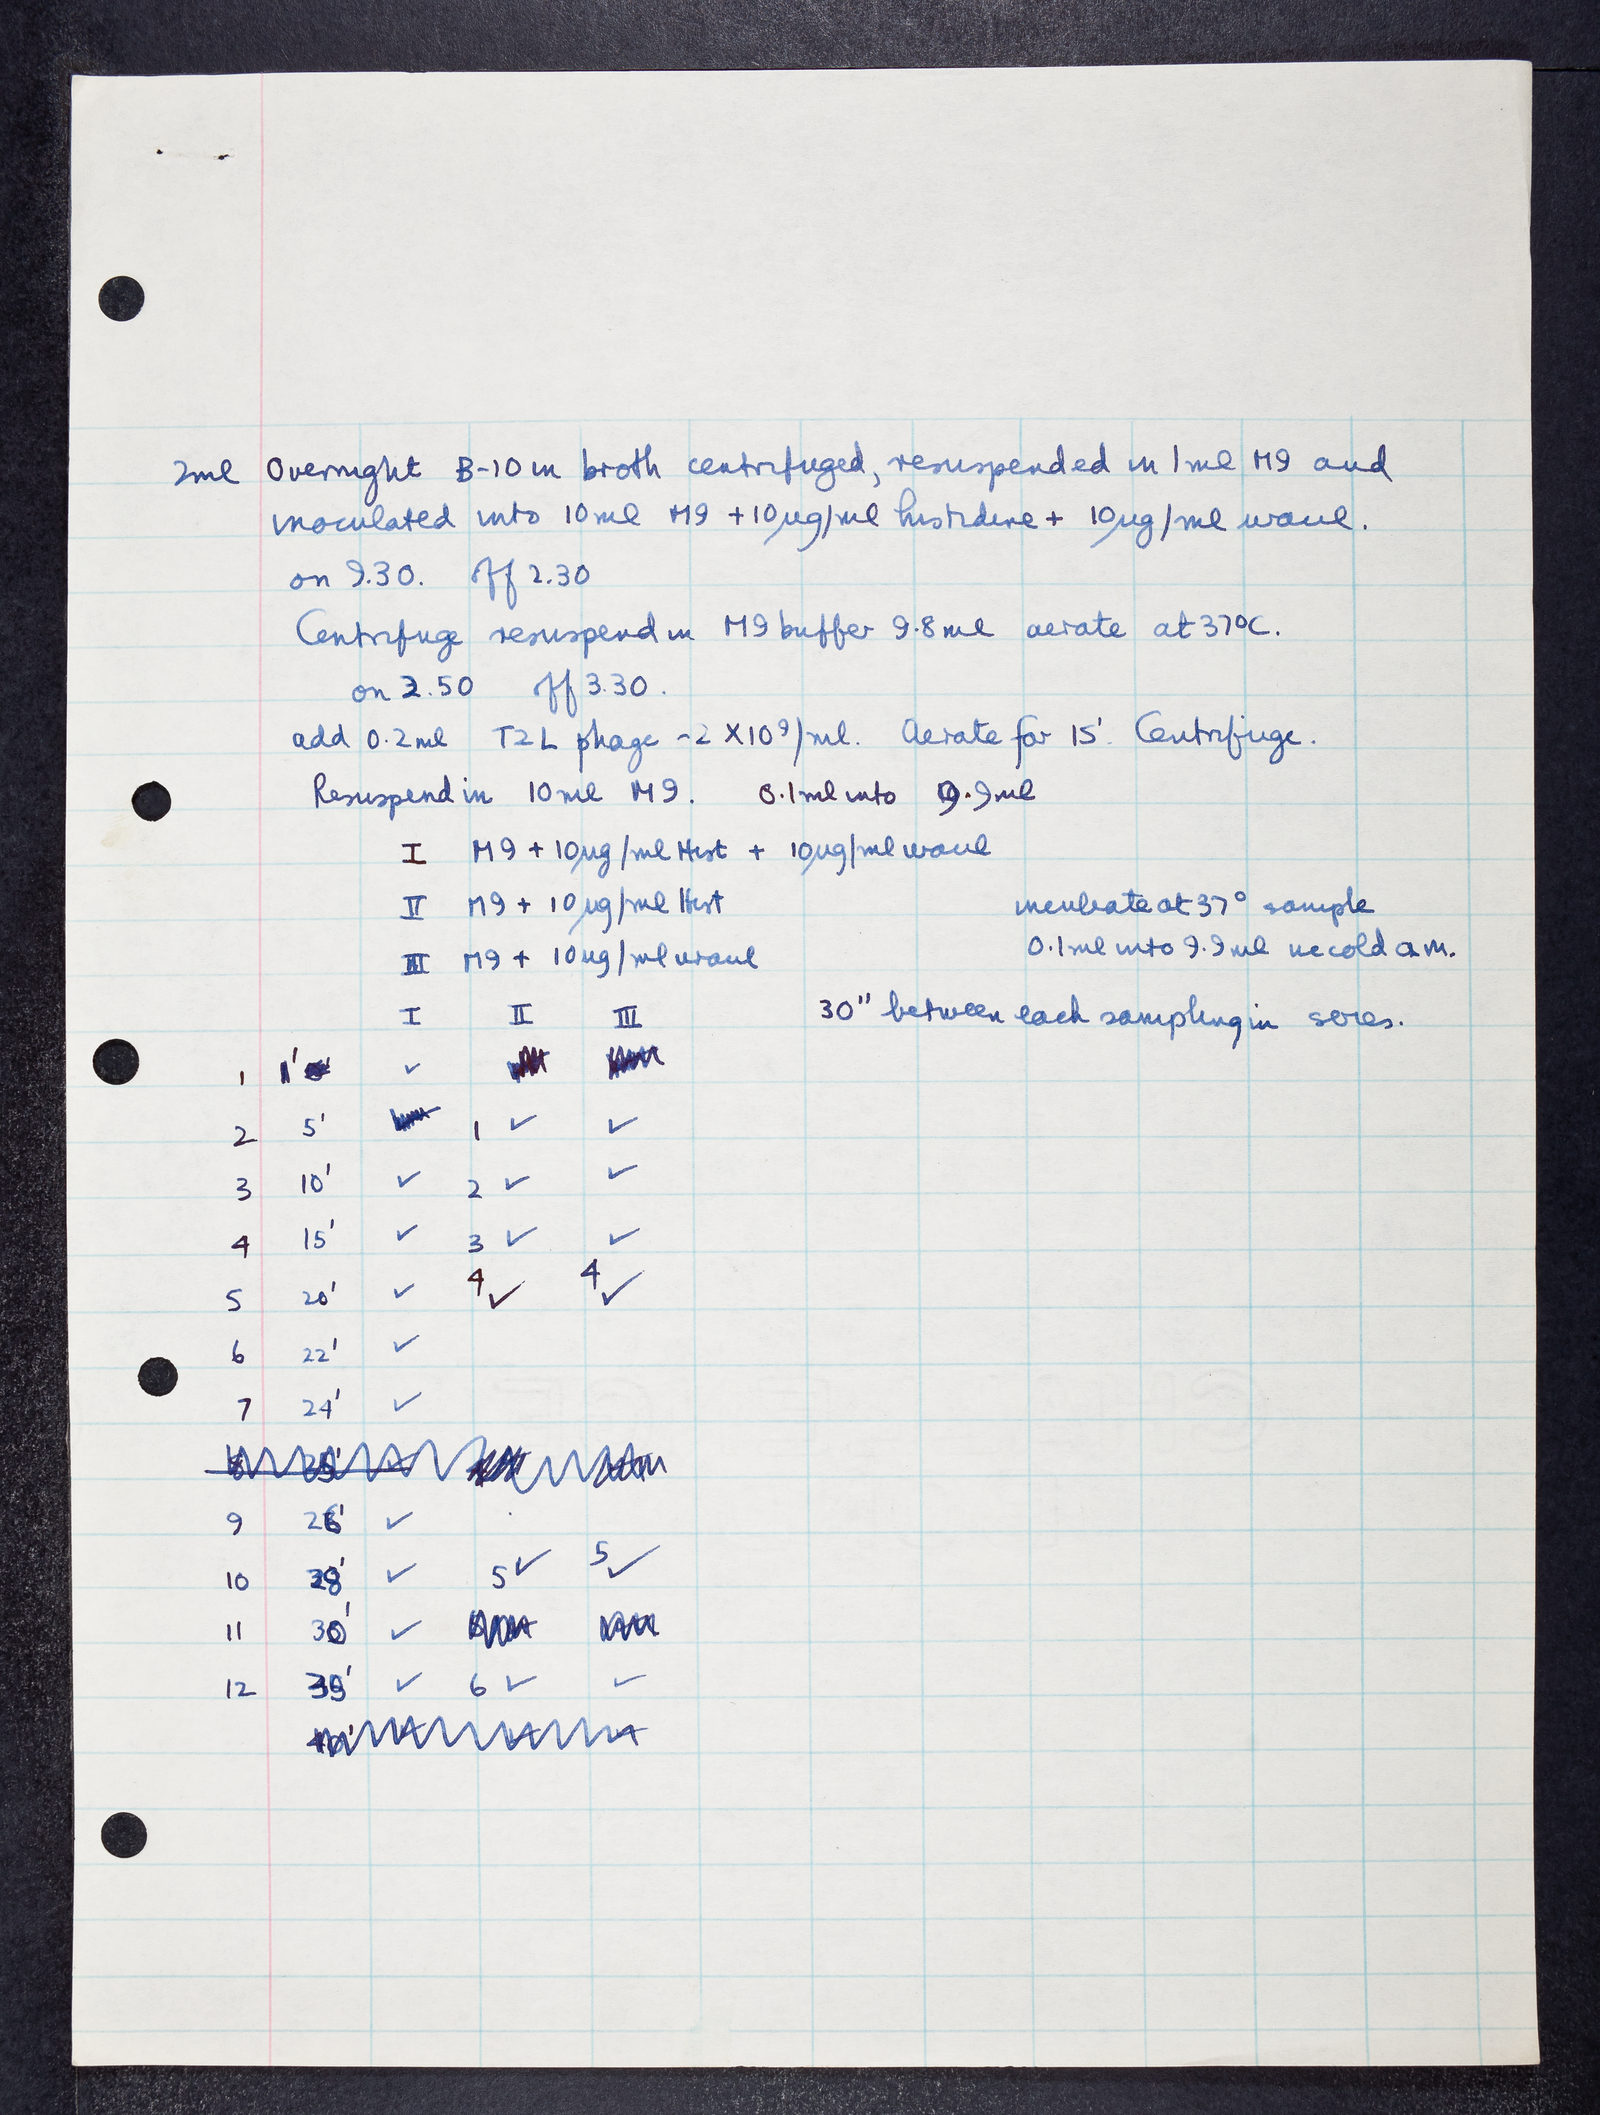 2ml Overnight B-10 in broth centrifuged, resuspended in 1ml M9 and
inoculated into 10ml M9 + 10µg/ml histidine + 10µg/ml uracil.
on 9.30. off 2.30
Centrifuge resuspend in M9 buffer 9.8ml aerate at 37°C.
on 2.50 off 3.30.
add 0.2ml T2L phage ~2 X10⁹/ml. Aerate for 15'. Centrifuge.
Resuspend in 10ml M9. 0.1ml into 9.9ml
I M9 + 10µg/ml Hist + 10µg/ml uracil
II M9 + 10µg/ml Hist
III M9 + 10µg/ml uracil
incubate at 37° sample
0.1ml into 9.9ml ice cold
30" between each sampling in series.
I II III
1 1' ✓
2 5' 1 ✓ ✓
3 10' ✓ 2 ✓ ✓
4 15' ✓ 3 ✓ ✓
5 20' ✓ 4 ✓ 4 ✓
6 22' ✓
7 24' ✓
9 26' ✓
10 28' ✓ 5 ✓ 5 ✓
11 30' ✓
12 35' ✓ 6 ✓ ✓